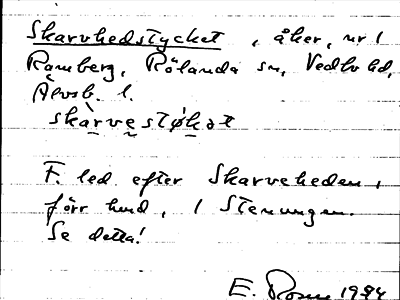 Skarvhedstycket, åker, nr 1
Ramberg, Rölanda sn, Vedbo hd,
Älvsb. l.
skàrvestỳkət
F. led efter Skarveheden,
förr hmd, i Stenungen.
Se detta!
E. Rosen 1934